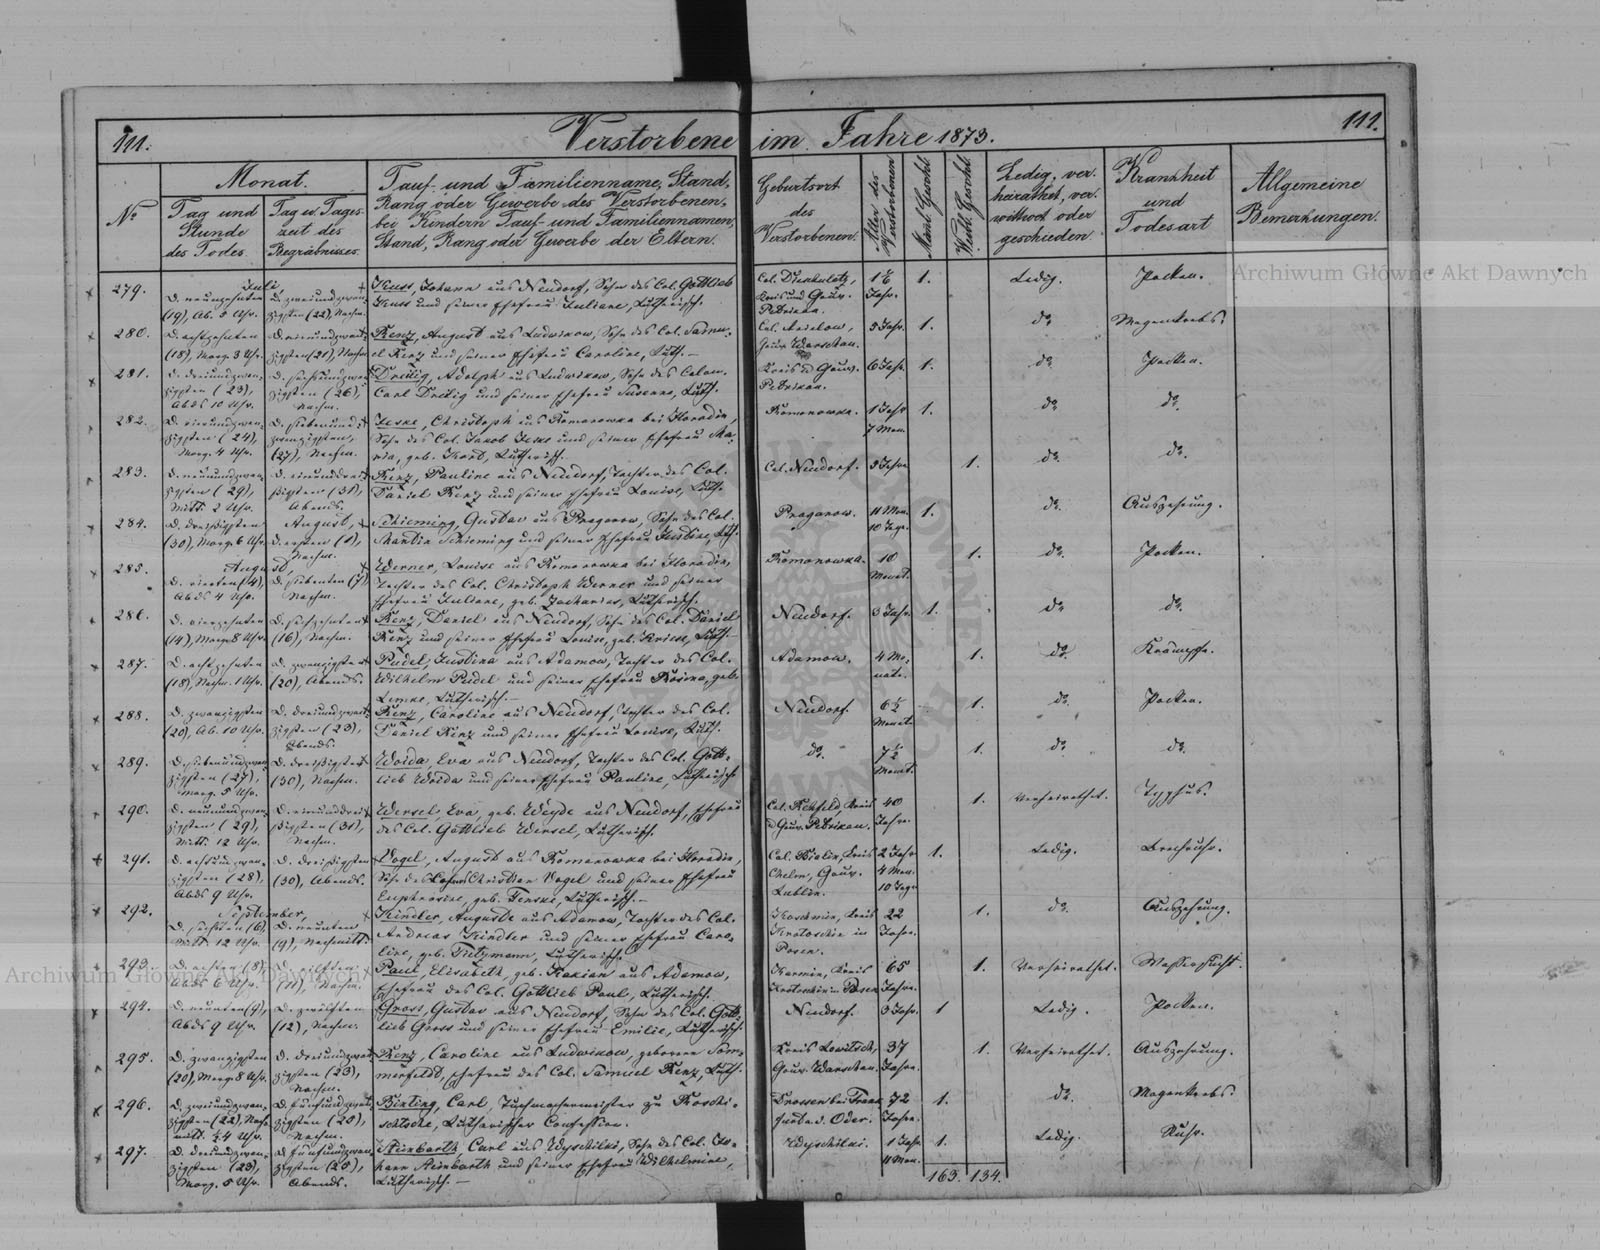 111.
Verstorbene im Jahre 1873.
111.
№
Monat.
Tag und Stunde des Todes.
Tag u. Tages-
zeit des
Begräbnisses.
Tauf- und Familienname, Stand,
Rang oder Gewerbe des Verstorbenen,
bei Kindern Tauf- und Familiennamen,
Stand, Rang oder Gewerbe der Eltern.
Geburtsort
des
Verstorbenen.
Alter des
Verstorbenen
Mänl. Geschl.
Weibl. Geschl.
Ledig, ver-
heirathet, ver-
wittwet oder
geschieden.
Krankheit
und
Todesart
Allgemeine
Bemerkungen.
279.
Juli,
D. neunzehnten
(19), Ab. 5 Uhr.
D. zweiundzwan-
zigsten (22), Nachm.
Johann aus Neudorf, Sohn des Col. Gottlieb
und seiner Ehefrau Juliane, Lutherisch.
Kreis und Gouv.
Petrikau.
1½
Jahr.
1.
Ledig.
Pocken.
280.
D. achtzehnten
(18), Morg. 3 Uhr.
D. einundzwan-
zigsten (21), Nachm.
Renz, August aus Ludwikow, Sohn des Col. Samu-
el Renz und seiner Ehefrau Caroline, Luth.—
Gouv. Warschau.
3 Jahr.
1.
do.
Magenkrebs.
281.
D. dreiundzwan-
zigsten (23),
Abds 10 Uhr.
D. sechsundzwan-
zigsten (26),
Nachm.
Dreilig, Adolph aus Ludwikow, Sohn des Colon.
Carl Dreilig und seiner Ehefrau Susanna, Luth.
Kreis u. Gouv.
Petrikau.
6 Jahr.
1.
do.
Pocken.
282.
D. vierundzwan-
zigsten (24),
Morg. 4 Uhr.
D. siebenund-
zwanzigsten,
(27), Nachm.
Jeske, Christoph aus Romanowka bei Horodin,
Sohn des Col. Jakob Jeske und seiner Ehefrau Ma-
ria, geb. Lutherisch.
Romanowka.
1 Jahr
7 Mon.
1.
do.
do.
283.
D. neunundzwan-
zigsten (29),
Mitt. 2 Uhr.
D. einunddrei-
ßigsten (31),
Abends.
Renz, Pauline aus Neudorf, Tochter des Col.
Daniel Renz und seiner Ehefrau Louise, Luth.
Col. Neudorf.
3 Jahre
1.
do.
do.
284.
D. dreißigsten
(30), Morg. 6 Uhr.
August,
D. ersten (1),
Nachm.
Schieming, Gustav aus Pragarow, Sohn des Col.
Martin Schieming und seiner Ehefrau Justine, Luth.
Pragarow.
11 Mon.
10 Tage.
1.
do.
Auszehrung.
285.
August,
D. vierten (4),
Abds 4 Uhr.
D. siebenten (7),
Nachm.
Werner, Louise aus Romanowka bei Horodin,
Tochter des Col. Christoph Werner und seiner
Ehefrau Juliane, geb. Zacharias, Lutherisch.
Romanowka.
10
Monat.
1.
do.
Pocken.
286.
D. vierzehnten
(14), Morg. 8 Uhr.
D. sechzehnten
(16), Nachm.
Renz, Daniel aus Neudorf, Sohn des Col. Daniel
Renz und seiner Ehefrau Louise, geb. Kriese, Luth.—
Neudorf.
3 Jahr.
1.
do.
do.
287.
D. achtzehnten
(18), Nachm. 1 Uhr.
D. zwanzigsten
(20), Abends.
Pudel, Justina aus Adamow, Tochter des Col.
Wilhelm Pudel und seiner Ehefrau Rosina, geb.
Lemke, Lutherisch.—
Adamow.
4 Mo-
nate.
1.
do.
Krämpfe.
288.
D. zwanzigsten
(20), Ab. 10 Uhr.
D. dreiundzwan-
zigsten (23),
Abends.
Renz, Caroline aus Neudorf, Tochter des Col.
Daniel Renz und seiner Ehefrau Louise, Luth.
Neudorf.
6½
Monat.
1.
do.
Pocken.
289.
D. siebenundzwan-
zigsten (27),
Morg. 5 Uhr.
D. dreißigsten
(30), Nachm.
Woida, Eva aus Neudorf, Tochter des Col. Gott-
lieb Woida und seiner Ehefrau Pauline, Lutherisch
do.
7½
Monat.
1.
do.
do.
290.
D. neunundzwan-
zigsten (29),
Mitt. 12 Uhr.
D. einunddrei-
ßigsten (31),
Nachm.
Wersel, Eva, geb. Weyde aus Neudorf, Ehefrau
des Col. Gottlieb Wersel, Lutherisch.
Kreis
u. Gouv. Petrikau.
40
Jahre.
1.
Verheirathet.
Typhus.
291.
D. achtundzwan-
zigsten (28),
Abds 9 Uhr.
D. dreißigsten
(30), Abends.
Vogel, August aus Romanowka bei Horodin,
Sohn des Christian Vogel und seiner Ehefrau
Euphrosine, geb. Fenske, Lutherisch.—
Col. Kreis
Chelm, Gouv.
Lublin.
2 Jahr
4 Mon.
10 Tage
1.
Ledig.
Brechruhr.
292.
September,
D. sechsten (6),
Mitt. 12 Uhr.
D. neunten
(9), Nachmitt.
Kindler, Auguste aus Adamow, Tochter des Col.
Andreas Kindler und seiner Ehefrau Caro-
line, geb. Tietzmann, Lutherisch.
Koschmin, Kreis
Krotoschin in
Posen.
22
Jahre.
1.
do.
Auszehrung.
293.
D. achten (8),
Abds 6 Uhr.
D. elften
(11), Nachm.
Paul, Elisabeth, geb. Kasian aus Adamow,
Ehefrau des Col. Gottlieb Paul, Lutherisch.
Kreis
Krotoschin in Posen
65
Jahre.
1.
Verheirathet.
Wassersucht.
294.
D. neunten (9),
Abds 9 Uhr.
D. zwölften
(12), Nachm.
Gross, Gustav aus Neudorf, Sohn des Col. Gott-
lieb Gross und seiner Ehefrau Emilie, Lutherisch.
Neudorf.
3 Jahr.
1
Ledig.
Pocken.
295.
D. zwanzigsten
(20), Morg. 8 Uhr.
D. dreiundzwan-
zigsten (23),
Nachm.
Renz, Caroline aus Ludwikow, geborene Som-
merfeldt, Ehefrau des Col. Samuel Renz, Luth.
Kreis Lowitsch,
Gouv. Warschau.
37
Jahre.
1.
Verheirathet.
Auszehrung.
296.
D. zweiundzwan-
zigsten (22), Nach-
mitt. ½4 Uhr.
D. fünfundzwan-
zigsten (25),
Nachm.
Binting, Carl, Tuchmachermeister zu Koschi-
schtsche, Lutherischer Confession.
Drossen bei Frank-
furt a. d. Oder.
72
Jahre.
1.
do.
Magenkrebs.
297.
D. dreiundzwan-
zigsten (23),
Morg. 5 Uhr.
D. fünfundzwan-
zigsten (25),
Abends.
Steinbarth, Carl aus Wyschilki, Sohn des Col. Jo-
hann Steinbarth und seiner Ehefrau Wilhelmine,
Lutherisch.—
Wyschilki.
1 Jahr
11 Mon.
1.
Ledig.
Ruhr.
163. 134.
Archiwum Główne Akt Dawnych
Archiwum Główne Akt Dawnych